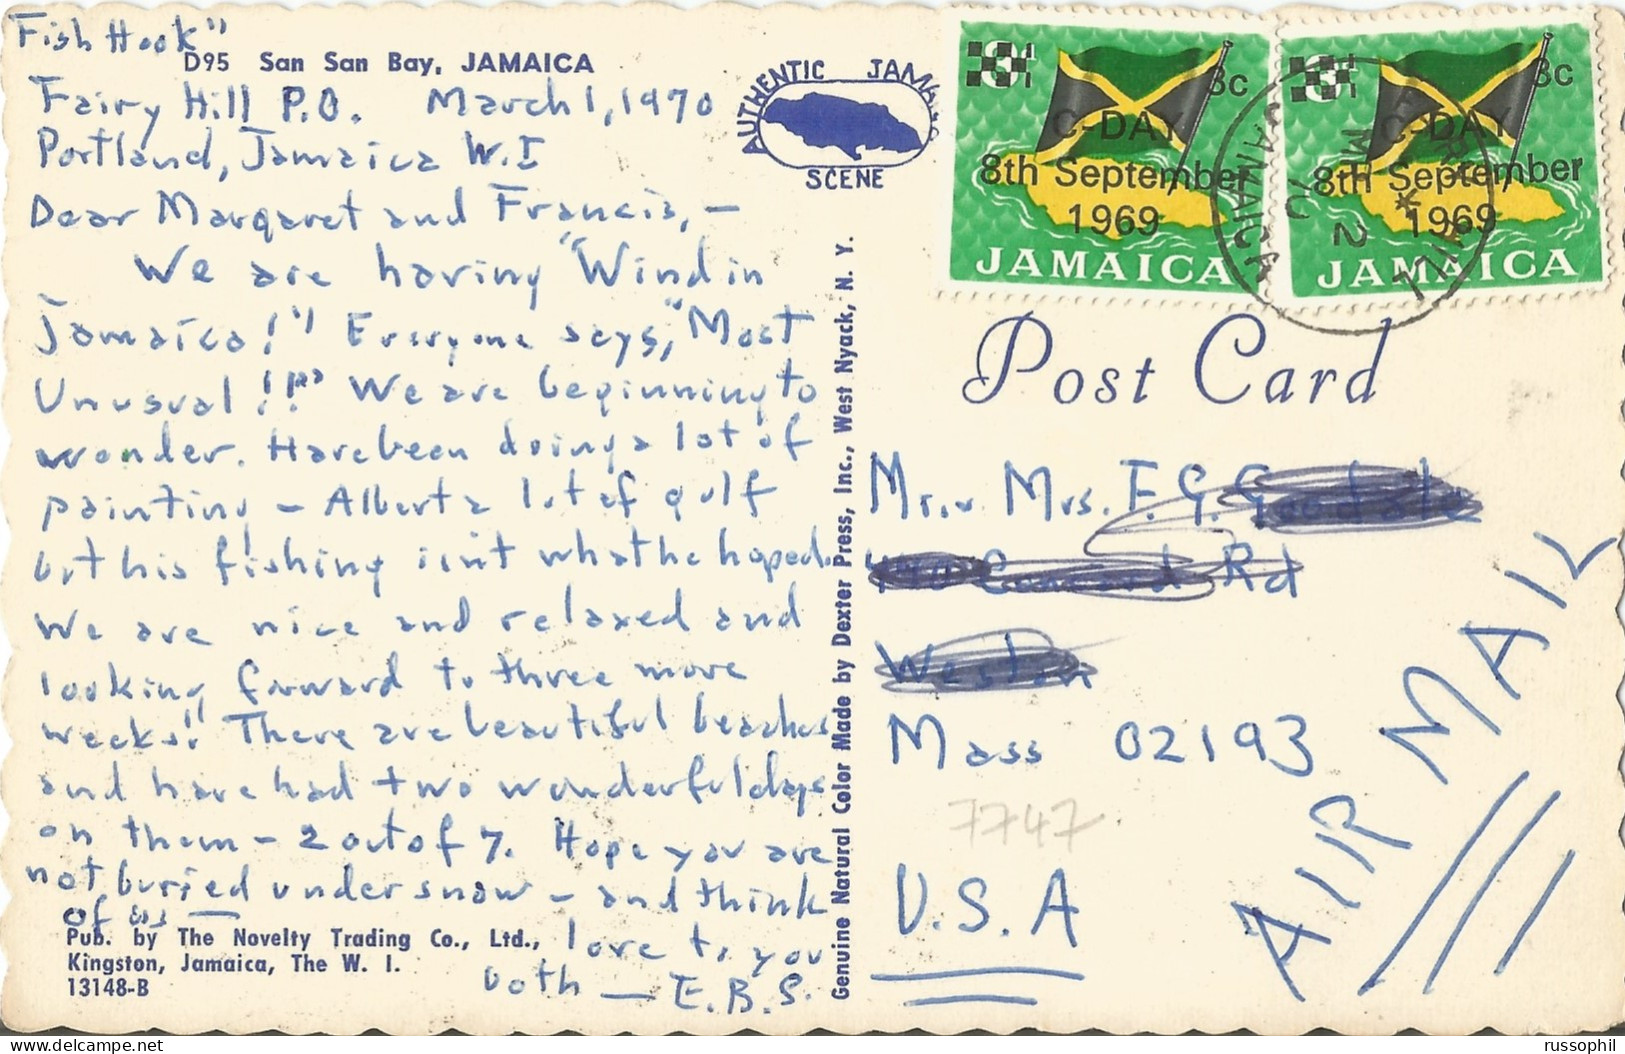 Fish Hook"
D95 San San Bay, JAMAICA
Fairy Hill P.O. March 1, 1970
Portland, Jamaica W.I
Dear Margaret and Francis, –
We are having "Wind in
Jamaica!" Everyone says, "Most
Unusual!!" We are beginning to
wonder. Have been doing a lot of
painting – Albert a lot of golf
but his fishing isn't what he hoped.
We are nice and relaxed and
looking forward to three more
weeks!! There are beautiful beaches
and have had two wonderful days
on them – 2 out of 7. Hope you are
not buried under snow – and think
of us —
love to you
both — E.B.S.
Pub. by The Novelty Trading Co., Ltd.,
Kingston, Jamaica, The W. I.
13148-B
AUTHENTIC JAMAICA
SCENE
Genuine Natural Color Made by Dexter Press, Inc., West Nyack, N. Y.
3c
C-DAY
8th September
1969
JAMAICA
3c
C-DAY
8th September
1969
JAMAICA
FAIRY HILL
JAMAICA
MR 2
70
Post Card
Mr. & Mrs. F. G.
Rd
Weston
Mass 02193
7747
U.S.A
AIR MAIL
russophil
delcampe.net